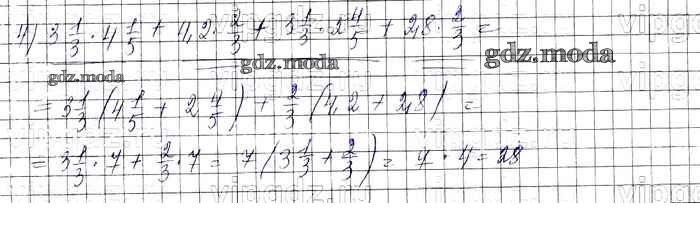 4) 3 1/3 · 4 1/5 + 4,2 · 2/3 + 3 1/3 · 2 4/5 + 2,8 · 2/3 =
gdz.moda gdz.moda gdz.moda
= 3 1/3 (4 1/5 + 2 4/5) + 2/3 (4,2 + 2,8) =
= 3 1/3 · 7 + 2/3 · 7 = 7 (3 1/3 + 2/3) = 7 · 4 = 28